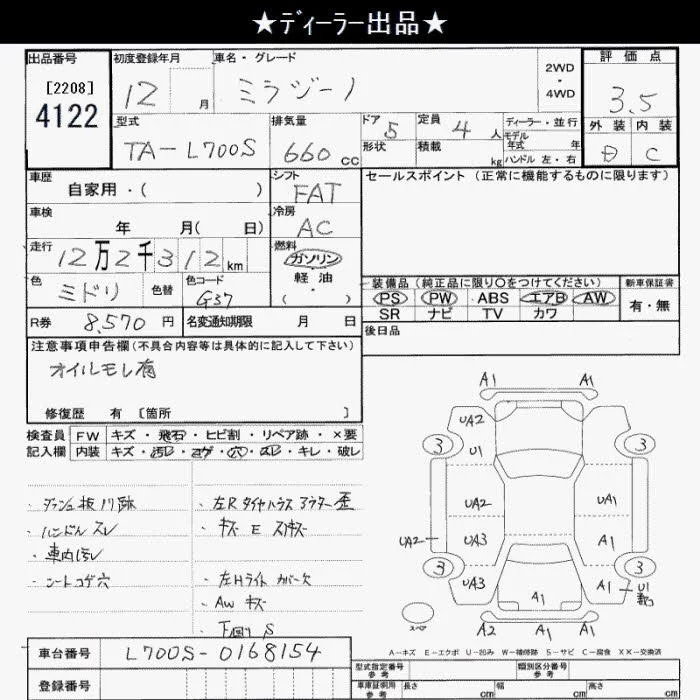 ★ディーラー出品★
出品番号 初度登録年月 車名・グレード 2WD ・ 4WD 評価点
[2208] 4122 12 月 ミラジーノ 3.5
型式 排気量 ドア 5 定員 4 人 ディーラー・並行 外装 内装
TA-L700S 660 CC 形状 積載 kg モデル年式 年 ハンドル 左・右 C
車歴 シフト セールスポイント (正常に機能するものに限ります)
自家用・( ) FAT
車検 冷房
年 月( 日) AC
走行 燃料
12万2千312 km ガソリン
色 色替 色コード 軽油 装備品 (純正品に限り○をつけてください) 新車保証書
ミドリ G37 ・( ) PS PW ABS エアB AW 有・無
R券 8,570 円 名変通知期限 月 日 SR ナビ TV カワ
後日品
注意事項申告欄(不具合内容等は具体的に記入して下さい)
オイルモレ有
修復歴 有 [箇所 ]
検査員 FW キズ・飛石・ヒビ割・リペア跡・×要
記入欄 内装 キズ・汚レ・コゲ・穴・スレ・キレ・破レ
・ダッシュ板ハリ跡
・ハンドル スレ
・車内汚レ
・シートコゲ穴
・キズ E
・左Hライト カバー欠
・AW キズ
・下回り S
A1 A1
UA2
3 3
U1
UA2 UA1
UA2 UA3 A1
3 3
UA3 A1 A1 U1
A2 A1
スペア
A-キズ E-エクボ U-凹み W-補修跡 S-サビ C-腐食 XX-交換済
車台番号 L700S-0168154
型式指定番号 参考 類別区分番号 参考
登録番号 車庫証明用 参考 長さ cm 幅 cm 高さ cm